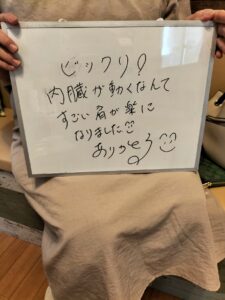 ビックリ!
内臓が動くなんて
すごい肩が楽に
なりました☺
ありがとう☺